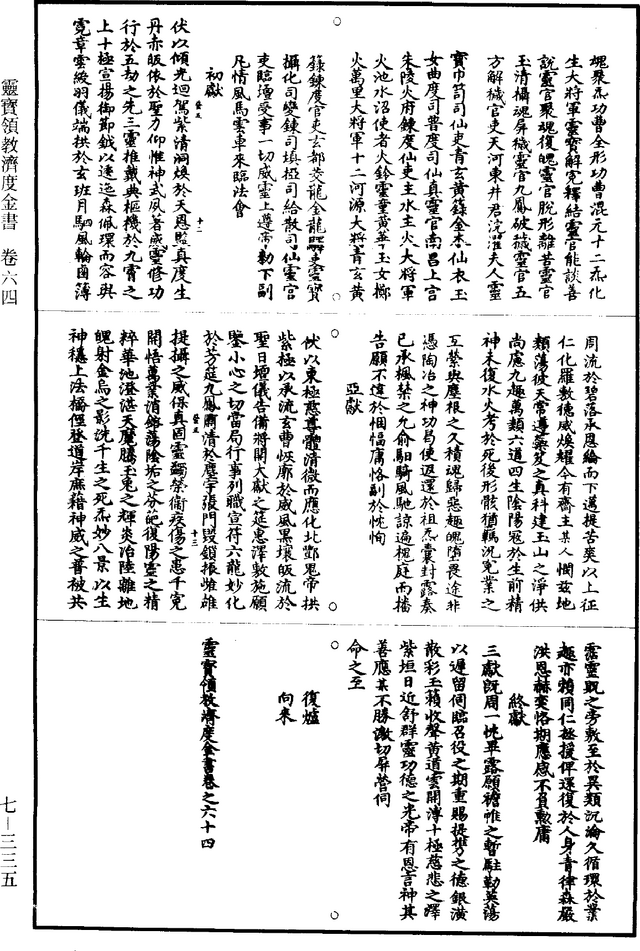 靈寶領教濟度金書 卷六四
七—三三五
魄聚炁功曹全形功曹混元十二炁化
生大將軍靈寶解冤釋結靈官能談善
說靈官聚魂復魄靈官脫形離苦靈官
玉清攝魂屏穢靈官九鳳破穢靈官五
方解穢官吏天河東井君浣濯夫人靈
寶巾笥司仙吏青玄黃籙金本仙衣玉
女曲度司普度司仙真靈官南昌上宮
朱陵火府鍊度仙吏主水主火大將軍
火池水沼使者火鈴靈童黃華玉女擲
火萬里大將軍十二河源大將青玄黃
籙鍊度官吏玄都茭龍金龍驛吏靈寶
攝化司變鍊司司給散司仙靈官
吏臨壇受事一切威靈上遵帝勅下副
凡情風馬雲車來臨法會
初獻
伏以傾光迴駕紫清洞煥於天恩監真度生
丹赤皈依於聖力仰惟神式夙著咸靈修功
行於五劫之先三靈推戴典樞機於九霄之
上十極宣揚御節鉞以逶迤森佩環而容與
霓章雲綴羽儀端拱於玄班月駟風輪鹵簿
十二
周流於碧落承恩綸而下邁提苦爽以上征
仁化羅敷德威煥耀今有齋主某人憫茲地
類蕩彼天常遵藥笈之真科建玉山之淨供
尚慮九趣萬類六道四生陰陽冦於生前精
神未復水火考於死後形骸猶羈況冤業之
互縈與塵根之久積魂歸惡趣魄墮畏途非
憑陶冶之神功曷使返還於祖炁囊封露奏
已承楓禁之允俞馹騎風馳諒遍槐庭而播
告願不違於悃愊庸恪副於忱恂
亞獻
伏以東極慈尊體清微而應化北酆鬼帝拱
紫極以承流玄曹恢廓於威風黑壤皈流於
聖日壇儀告備將開大獻之筵惠澤敷施願
鑒小心之切當局行事列職宣符六龍妙化
於芳筵九鳳肅清於塵宇張門毀鎖振雌雄
提攝之威保真固靈蠲榮衞疾傷之患千冤
開悟萬業消鎔蕩陰垢之芬葩復陽靈之精
粹華池澄湛天魔騰玉兔之輝炎冶陸離地
魄射金烏之影洗千生之死炁妙八景以生
神穩上法橋徑登道岸庶藉神威之普被共
十三
霑靈貺之旁敷至於異類沉淪久循環於業
趣亦賴同仁極援俾還復於人身青律森嚴
洪恩赫奕恪期應感不負勳庸
終獻
三獻既周一忱畢露願襜帷之暫駐勒英蕩
以遲留伺臨召役之期重賜提携之德銀潢
散彩玉籟收聲黃道雲開溥十極慈悲之澤
紫垣日近舒群靈功德之光帝有恩言神其
善應某不勝激切屏營伺
命之至
復爐
向來
靈寶領教濟度金書卷之六十四